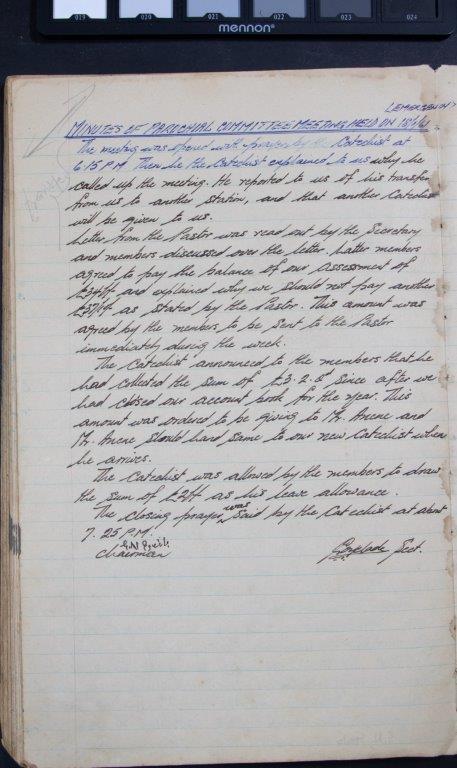 019 020 021 022 023 024
mennon
(EMERGENCY)
MINUTES OF PAROCHIAL COMMITTEE MEETING HELD ON 18/1/61
The meeting was opened with prayer by the Catechist at
6.15 P.M. Then he the Catechist explained to us why he
called up the meeting. He reported to us of his transfer
from us to another station, and that another Catechist
will be given to us.
Letter from the Pastor was read out by the Secretary
and members discussed over the letter. Latter members
agreed to pay the balance of our assessment of
and explained why we should not pay another
as stated by the Pastor. This amount was
agreed by the members to be sent to the Pastor
immediately during the week.
The Catechist announced to the members that he
had collected the sum of £3. 2. 8d since after we
had closed our account book for the year. This
amount was orderd to be giving to Mr. Anene and
Mr. Anene should hand same to our new Catechist when
he arrives.
The Catechist was allowed by the members to draw
the sum of as his leave allowance.
The closing prayer was said by the Catechist at about
7. 25 P.M.
Chairman Sect.